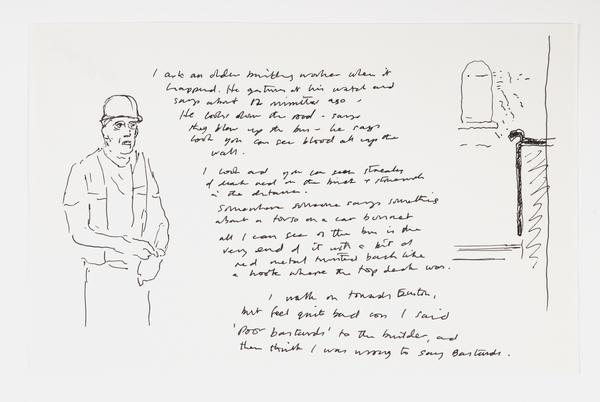 I ask an older building worker when it
happened. He gestures at his watch and
says about 12 minutes ago.
He looks down the road - says
they blew up the bus - he says
look you can see blood all up the
wall.
I look and you can see streaks
of dark red on the brick + stonework
in the distance.
Somewhere someone says something
about a torso on a car bonnet
all I can see of the bus is the
very end of it with a bit of
red metal twisted back like
a hook where the top deck was.
I walk on towards Euston,
but feel quite bad cos I said
'Poor bastards' to the builder, and
then think I was wrong to say Bastards.